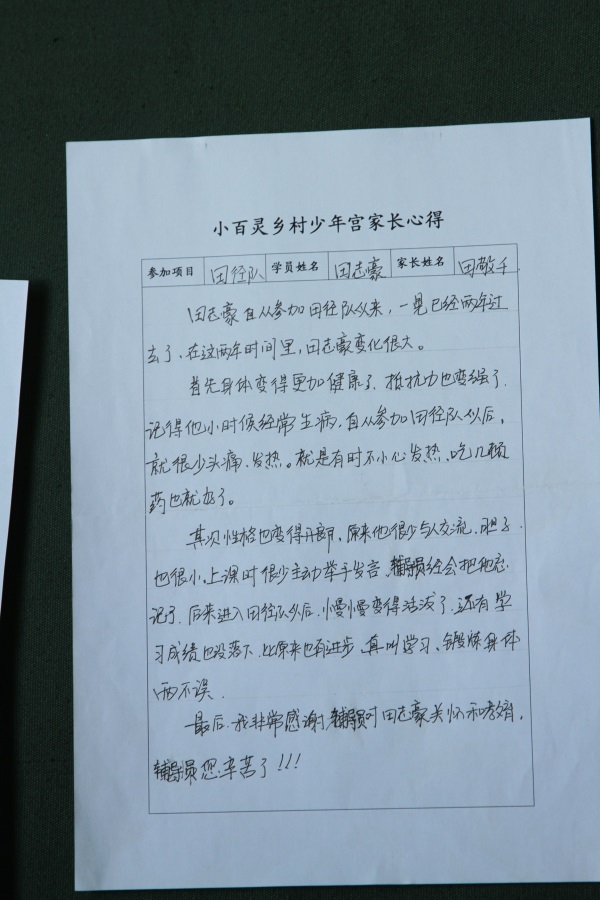 小百灵乡村少年宫家长心得
参加项目 田径队 学员姓名 田志豪 家长姓名 田敬
田志豪自从参加田径队以来，一晃已经两年过
去了、在这两年时间里，田志豪变化很大。
首先身体变得更加健康了、抵抗力也变强了
记得他小时候经常生病，自从参加田径队以后，
就很少头痛、发热。就是有时不小心发热、吃几顿
药也就好了。
其次性格也变得开朗、原来他很少与人交流，胆子
也很小、上课时很少主动举手发言、辅导员经会把他忘
记了、后来进入田径队以后、慢慢变得活泼了、还有学
习成绩也没落下、比原来也有进步、真叫学习、锻炼身体
两不误.
最后、我非常感谢辅导员对田志豪关怀和教育，
辅导员您辛苦了!!!